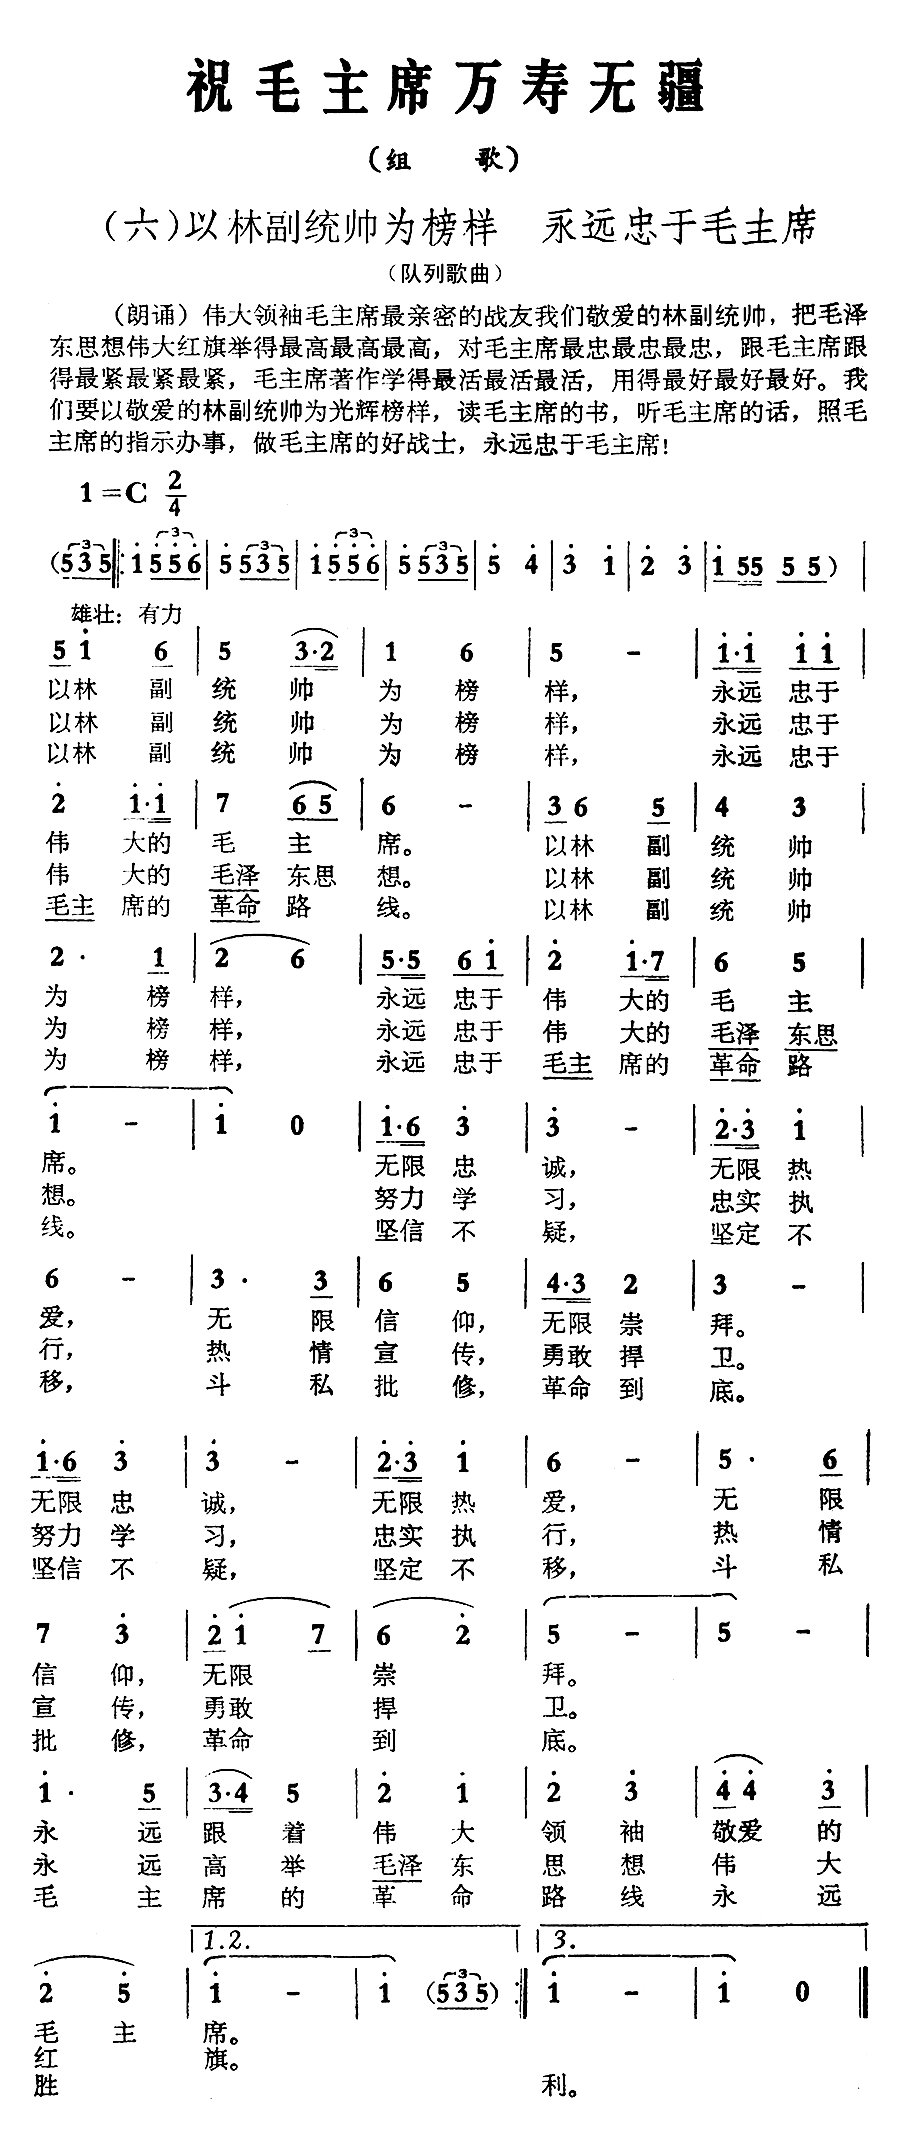 祝毛主席万寿无疆
（组 歌）
（六）以林副统帅为榜样 永远忠于毛主席
（队列歌曲）
（朗诵）伟大领袖毛主席最亲密的战友我们敬爱的林副统帅，把毛泽
东思想伟大红旗举得最高最高最高，对毛主席最忠最忠最忠，跟毛主席跟
得最紧最紧最紧，毛主席著作学得最活最活最活，用得最好最好最好。我
们要以敬爱的林副统帅为光辉榜样，读毛主席的书，听毛主席的话，照毛
主席的指示办事，做毛主席的好战士，永远忠于毛主席！
1=C 2/4
(535 |: i 556 | 5 535 | i 556 | 5 535 | 5 4 | 3 1 | 2 3 | i 55 5 5 ) |
雄壮：有力
5 i 6 | 5 3·2 | 1 6 | 5 - | i·i i i |
以林 副 统 帅 为 榜 样， 永远 忠于
以林 副 统 帅 为 榜 样， 永远 忠于
以林 副 统 帅 为 榜 样， 永远 忠于
2 i·i | 7 6 5 | 6 - | 3 6 5 | 4 3 |
伟 大的 毛 主 席。 以林 副 统 帅
伟 大的 毛泽 东思 想。 以林 副 统 帅
毛主 席的 革命 路 线。 以林 副 统 帅
2· 1 | 2 6 | 5·5 6 i | 2 i·7 | 6 5 |
为 榜 样， 永远 忠于 伟 大的 毛 主
为 榜 样， 永远 忠于 伟 大的 毛泽 东思
为 榜 样， 永远 忠于 毛主 席的 革命 路
i - | i 0 | i·6 3 | 3 - | 2·3 i |
席。 无限 忠 诚， 无限 热
想。 努力 学 习， 忠实 执
线。 坚信 不 疑， 坚定 不
6 - | 3· 3 | 6 5 | 4·3 2 | 3 - |
爱， 无 限 信 仰， 无限 崇 拜。
行， 热 情 宣 传， 勇敢 捍 卫。
移， 斗 私 批 修， 革命 到 底。
i·6 3 | 3 - | 2·3 i | 6 - | 5· 6 |
无限 忠 诚， 无限 热 爱， 无 限
努力 学 习， 忠实 执 行， 热 情
坚信 不 疑， 坚定 不 移， 斗 私
7 3 | 2 i 7 | 6 2 | 5 - | 5 - |
信 仰， 无限 崇 拜。
宣 传， 勇敢 捍 卫。
批 修， 革命 到 底。
i· 5 | 3·4 5 | 2 i | 2 3 | 4 4 3 |
永 远 跟 着 伟 大 领 袖 敬爱 的
永 远 高 举 毛泽 东 思 想 伟 大
毛 主 席 的 革 命 路 线 永 远
1.2. 3.
2 5 | i - | i (535) :| i - | i 0 ||
毛 主 席。
红 旗。
胜 利。